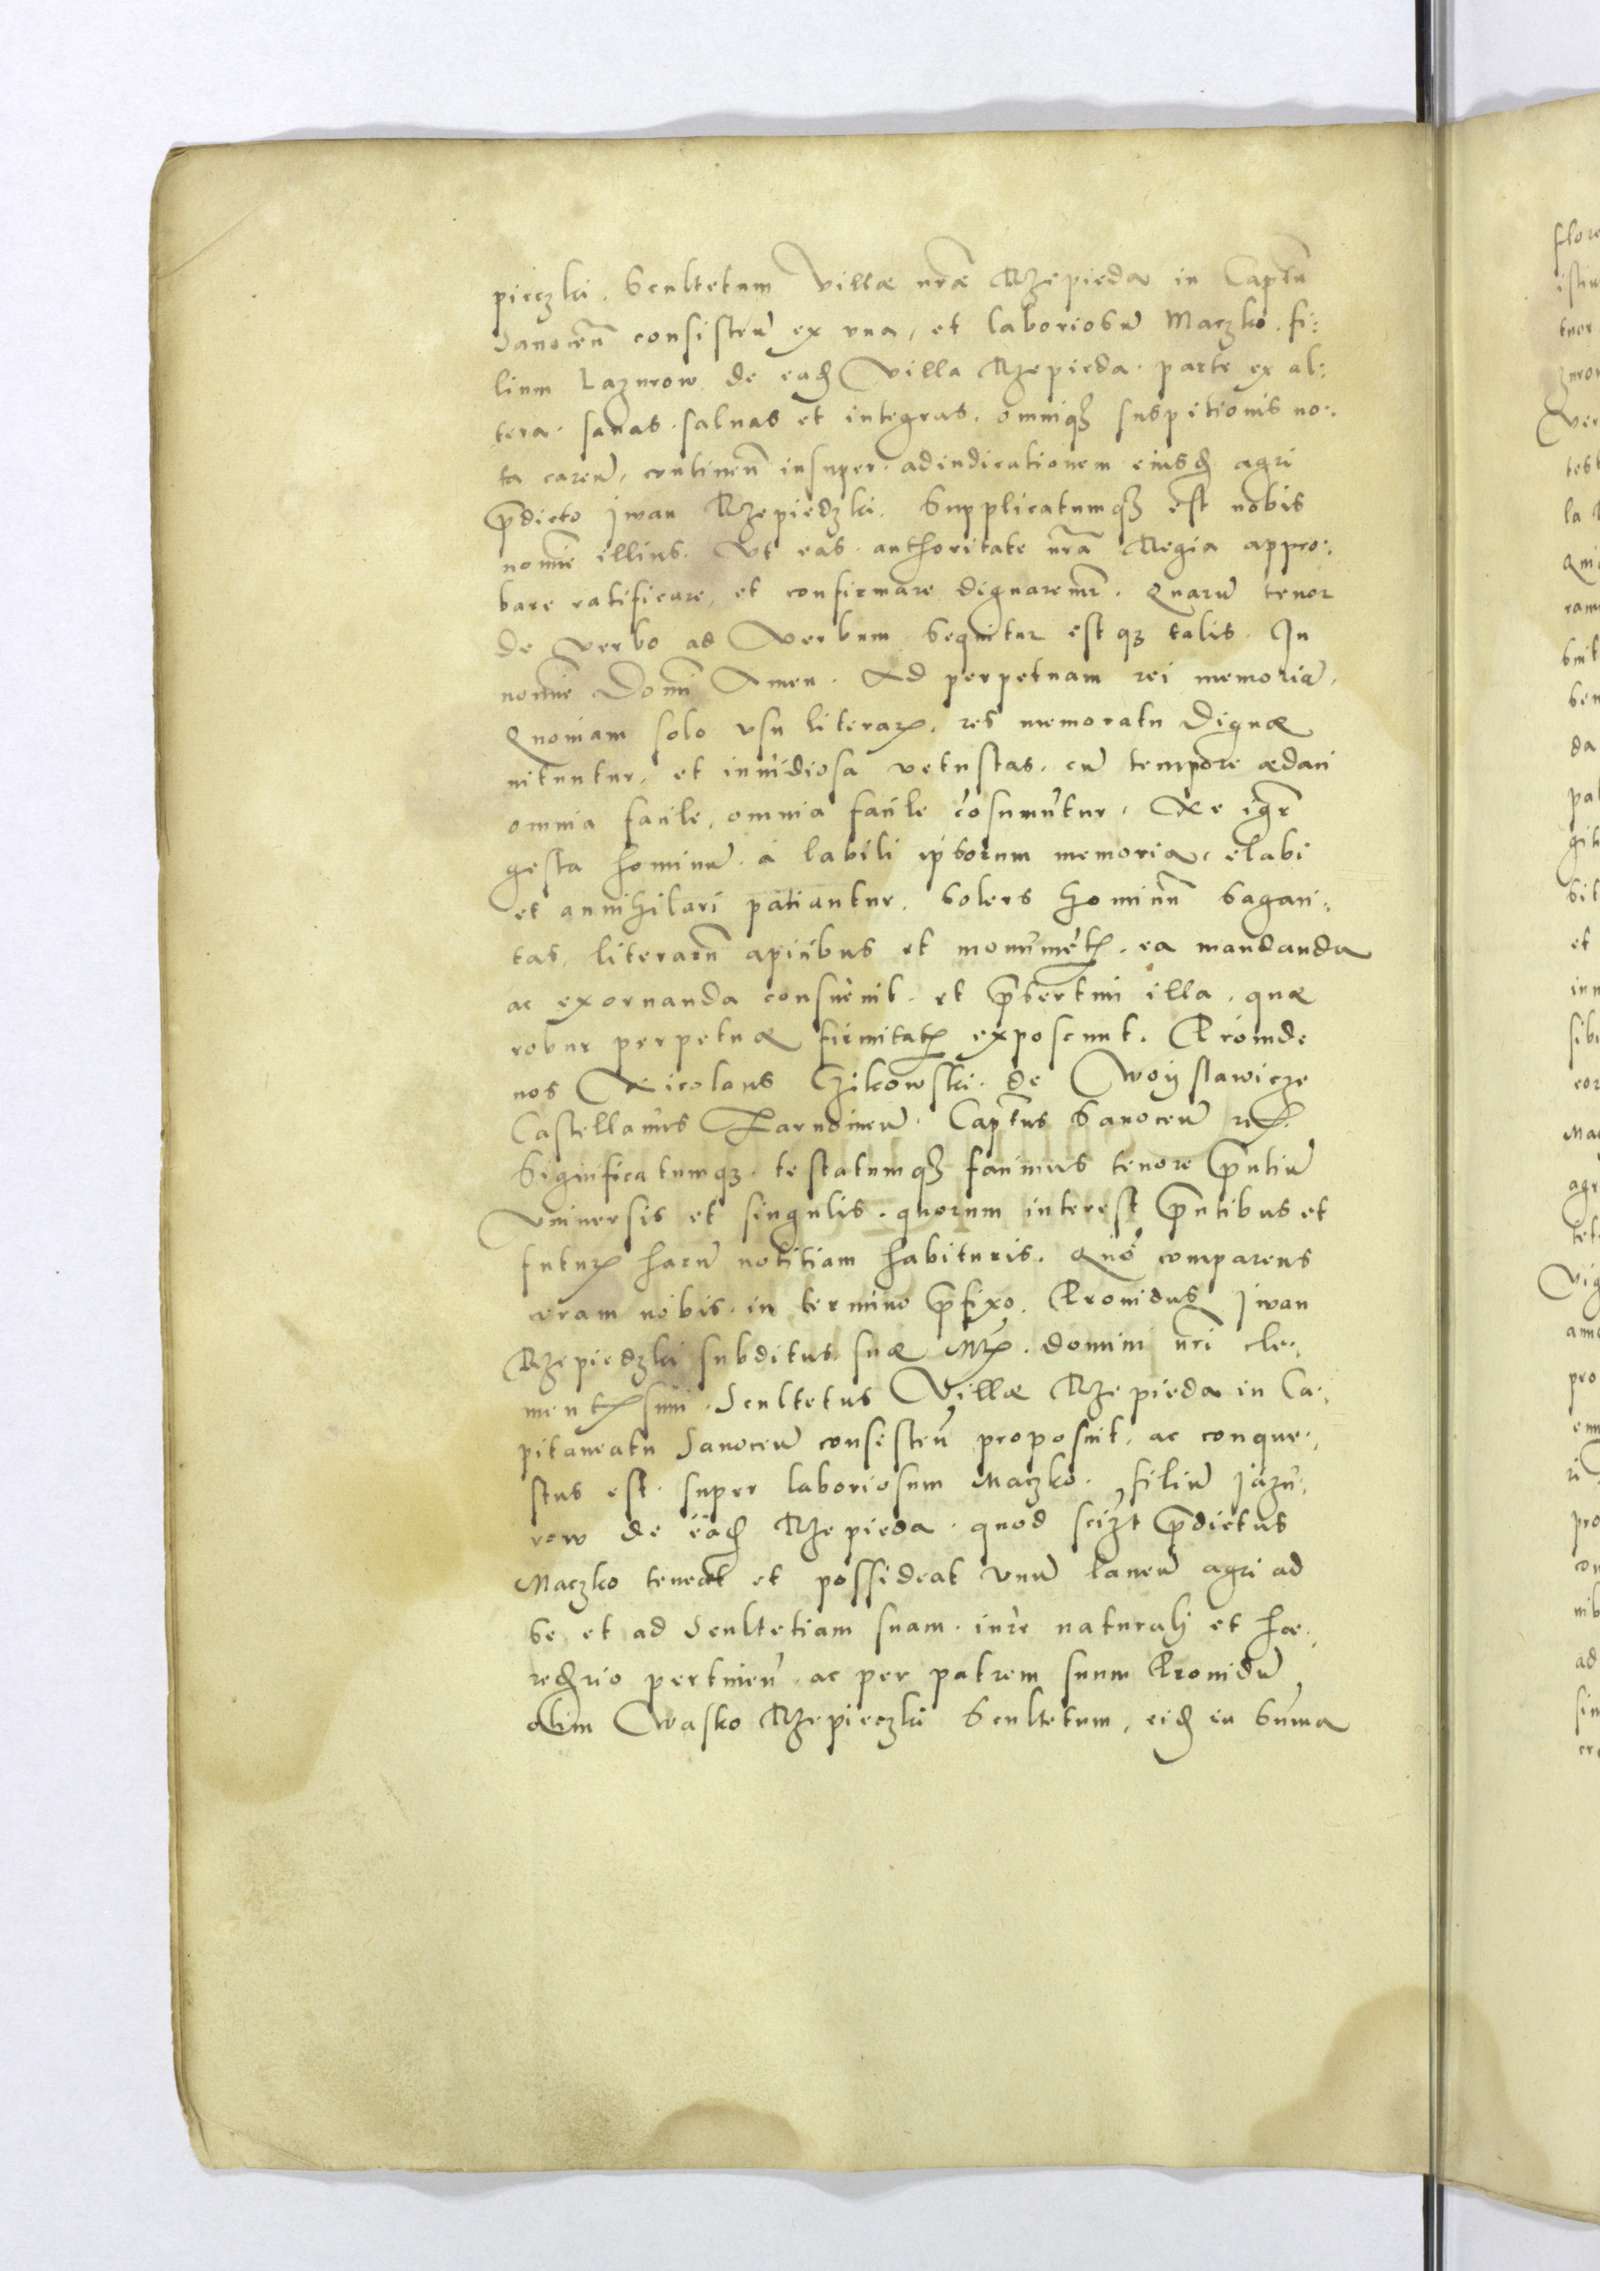 pieczki. Scultetum Villæ nrãe Rzepieda in Captũ
Sanoceñ consisteñ ex una, et laboriosũ Maczko. fi:
lium Lazurow de eadẽ Villa Rzepieda. parte ex al:
tera. sanas. salvas et integras. omniqꝫ suspitionis no:
ta careñ, continẽn insuper. adiudicationem eiusdẽ agri
p̃dicto Jwan Rzepiedzki. Supplicatumqꝫ est nobis
nomĩe illius. Vt eas authoritate nr̃a Regia appro:
bare ratificare, et confirmare dignaremr̃. Quarũ tenor
de verbo ad Verbum sequitur est qꝫ talis. In
nomĩe Domĩ Amen. Ad perpetuam rei memoriã.
Quoniam solo usu literarꝫ, res memoratu dignæ
nituntur, et inuidiosa vetustas. cũ tempore ædaci
omnia facile, omnia facile cõsumũtur. Ne igr̃
gesta hominũ. à labili ip̃sorum memoria, elabi
et annihilari patiantur. Solers hominũ sagaci:
tas, literarũ apicibus et monumẽtꝫ. ea mandanda
ac exornanda consuevit. et p̃sertim illa, quæ
robur perpetuæ firmitatꝫ exposcunt. Proinde
nos Nicolaus Czikowski. de Woyslawicze
Castellanus Zarudineñ. Captũs Sanoceñ etc.
Significatumqꝫ. testatumqꝫ facimus tenore p̃ntiũ
Vniversis et singulis. quorum interest p̃ntibus et
futurꝫ harũ notitiam habituris. Quõ comparens
coram nobis. in termino p̃fixo. Providus Jwan
Rzepiedzki subditus suæ Mtꝫ. domini nr̃i cle:
mentꝫsimi. Scultetus Villæ Rzepieda in Ca:
pitaneatu Sanoceñ consisteñ proposuit. ac conque:
stus est. super laboriosum Maczko. filiũ Jazu:
row de eadẽ Rzepieda. quod scizt p̃dictus
Maczko teneat et possideat vnũ laneũ agri ad
se et ad Scultetiam suam. iure naturali et hæ:
redrio pertineñ. ac per patrem suum Providũ
olim Wasko Rzepieczki Scultetum, eidẽ in summa